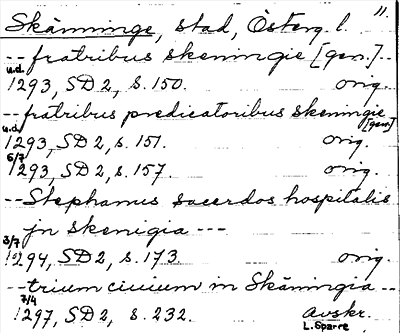 11.
Skänninge, stad, Österg. l.
--fratribus skeningie [gen.]--
u.d.
1293, SD 2, s. 150. orig.
--fratribus predicatoribus skeningie [gen.]
u.d.
1293, SD 2, s. 151. orig.
6/7
1293, SD 2, s. 157. orig.
--Stephanus sacerdos hospitalis
jn skenigia ---
3/7
1294, SD 2, s. 173. orig.
--trium ciuium in Skäningia --
7/4
1297, SD 2, s. 232. avskr.
L. Sparre